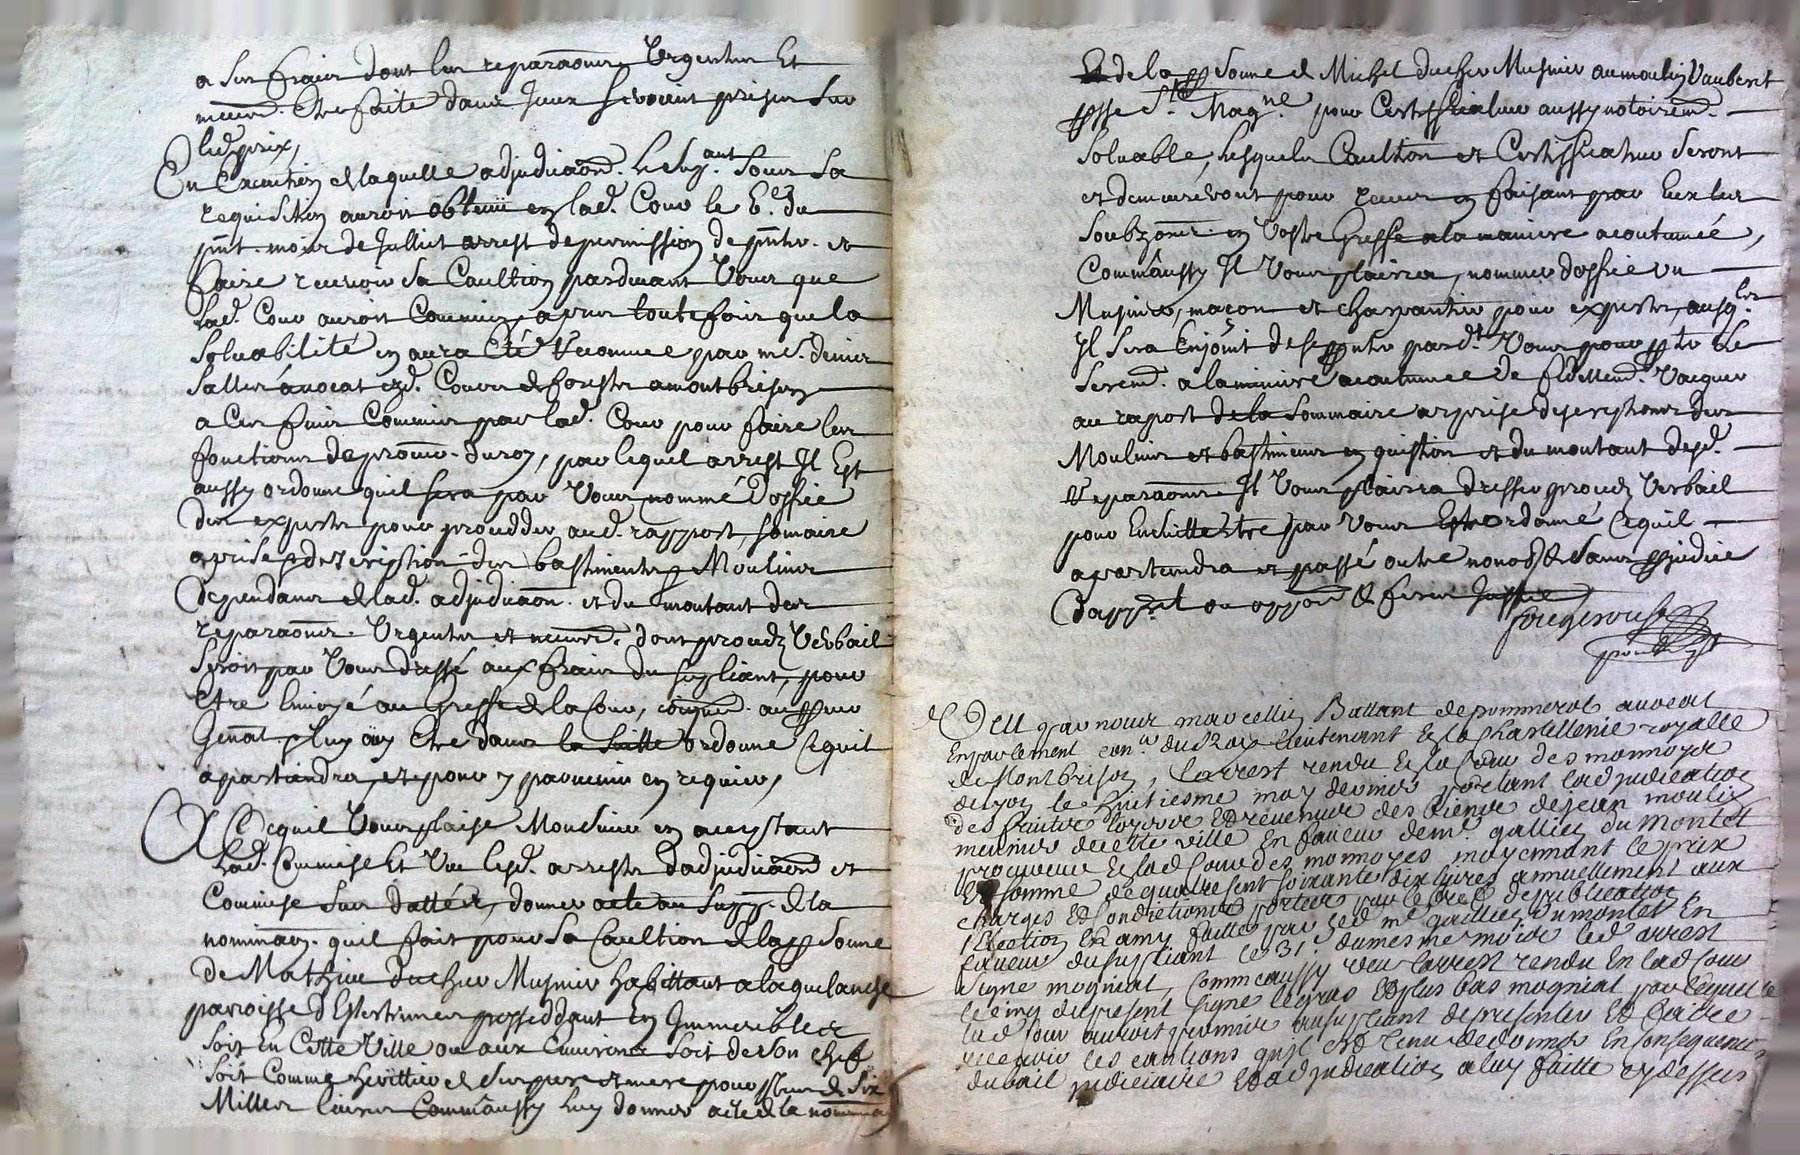 a ses fraix dont les reparaons Urgentes Et
necess. Estre faite dans Iceux seroient prises sur
led. prix,
En Execution de laquelle adjudicaon. le sup.ant sous sa
requisition auroit obtenu en lad. Cour le 6.e du
pnt. mois de Juillet arrest de permission de pnter. et
faire recevoir sa Caultion pardevant Vous que
lad. Cour auroit Commis, apres toutefois que la
solvabilité en aura Eté Reconnue par me. denis
Salles avocat ezd. Cours de forestz a montbrison
a Ces fins Commis par lad. Cour pour faire les
fonctions de procur. du roy, par lequel arrest Il Est
aussy ordonné quil sera par Vous nommé d'office
des expertz pour procedder aud. rapport, somaire
aprise & description des bastimentz Moulins
dependans de lad. adjudicaon. et du montant des
reparaons. Urgentes et necess. dont procedz Verbail
seroit par Vous dressé aux fraix du supliant, pour
Etre Envoyé au Greffe de la Cour, coïqué. au procureur
Genal. pluy ouy Etre dans la suitte ordonné Cequil
apartiendra, et pour y parvenir en requier,
A Cequil Vous plaise Monsieur en acceptant
lad. Commise Et Vu lesd. arrestz dadjudicaon et
Commise sus dattés, donner acte au supp. de la
nominaon. quil fait pour sa Caultion de la psonne
de Mathieu ducher Musnier habittant a laguelanche
parroisse d'Estertinnes posseddant en Immeubles
soit En Cette Ville ou aux Environs soit de son chef
soit Comme herittier de ses pere et mere pour plus de six
Milles livres Comm'aussy luy donner acte de la nomina
Et de la psonne de Michel ducher Musnier au moulin Vaubert
psse St. Mag.ne pour Certifficateur aussy notoirem.
solvable, lesquels Caultion et Certifficateur seront
et demeureront pour receus en faisant par Eux les
soubzons. en Vostre Greffe a la maniere acoutumée,
Comm'aussy Il Vous plairra, nommer d'office un
Musnier, maçon et charpantier pour expertz, ausq.ls
Il sera Enjoint de se pnter pard.t Vous pour pter le
serem. a la maniere acoutumée de fidellem. Vacquer
au raport de la sommaire aprise descriptions des
Moulins et bastimens en question et du montant desd.
Reparaons. Il Vous plairra dresser procedz Verbail
pour Ensuitte Etre par Vous Estre ordonné Cequil
apartiendra et passé outre nonobst & sans prejudice
d'app.el ou oppon & ferez Justice

Veu par nous marcellin Battant de pommerol avocat
En parlement con.er du Roy Lieutenant En la Chastellenie royalle
de Montbrison, Larrest rendu En la Cour des monnoyes
de Lyon le huitiesme may dernier portant ladjudication
des fruitz loyers Et revenus des biens de jean moulin
meunier de cette ville En faveur de me. gallien du montet
procureur En lad. Cour des monnoyes moyennant le prix
Et somme de quatre cent soixante dix livres annuellement aux
charges Et Conditions portées par le decret de publication
l'Election En amy faitte par led. me. gallien dumontet En
faveur du supliant le 31.e dumesme mois led. arrest
signe mogniat, comme aussy veu Larrest rendu En lad. Cour
le cinq du present signe legras Et plus bas mogniat par lequel
lad. Cour auroit permis au supliant de presenter Et faire
recevoir les cautions quil est tenu de donner En consequence
du bail judiciaire Et adjudication a luy faitte cy dessus